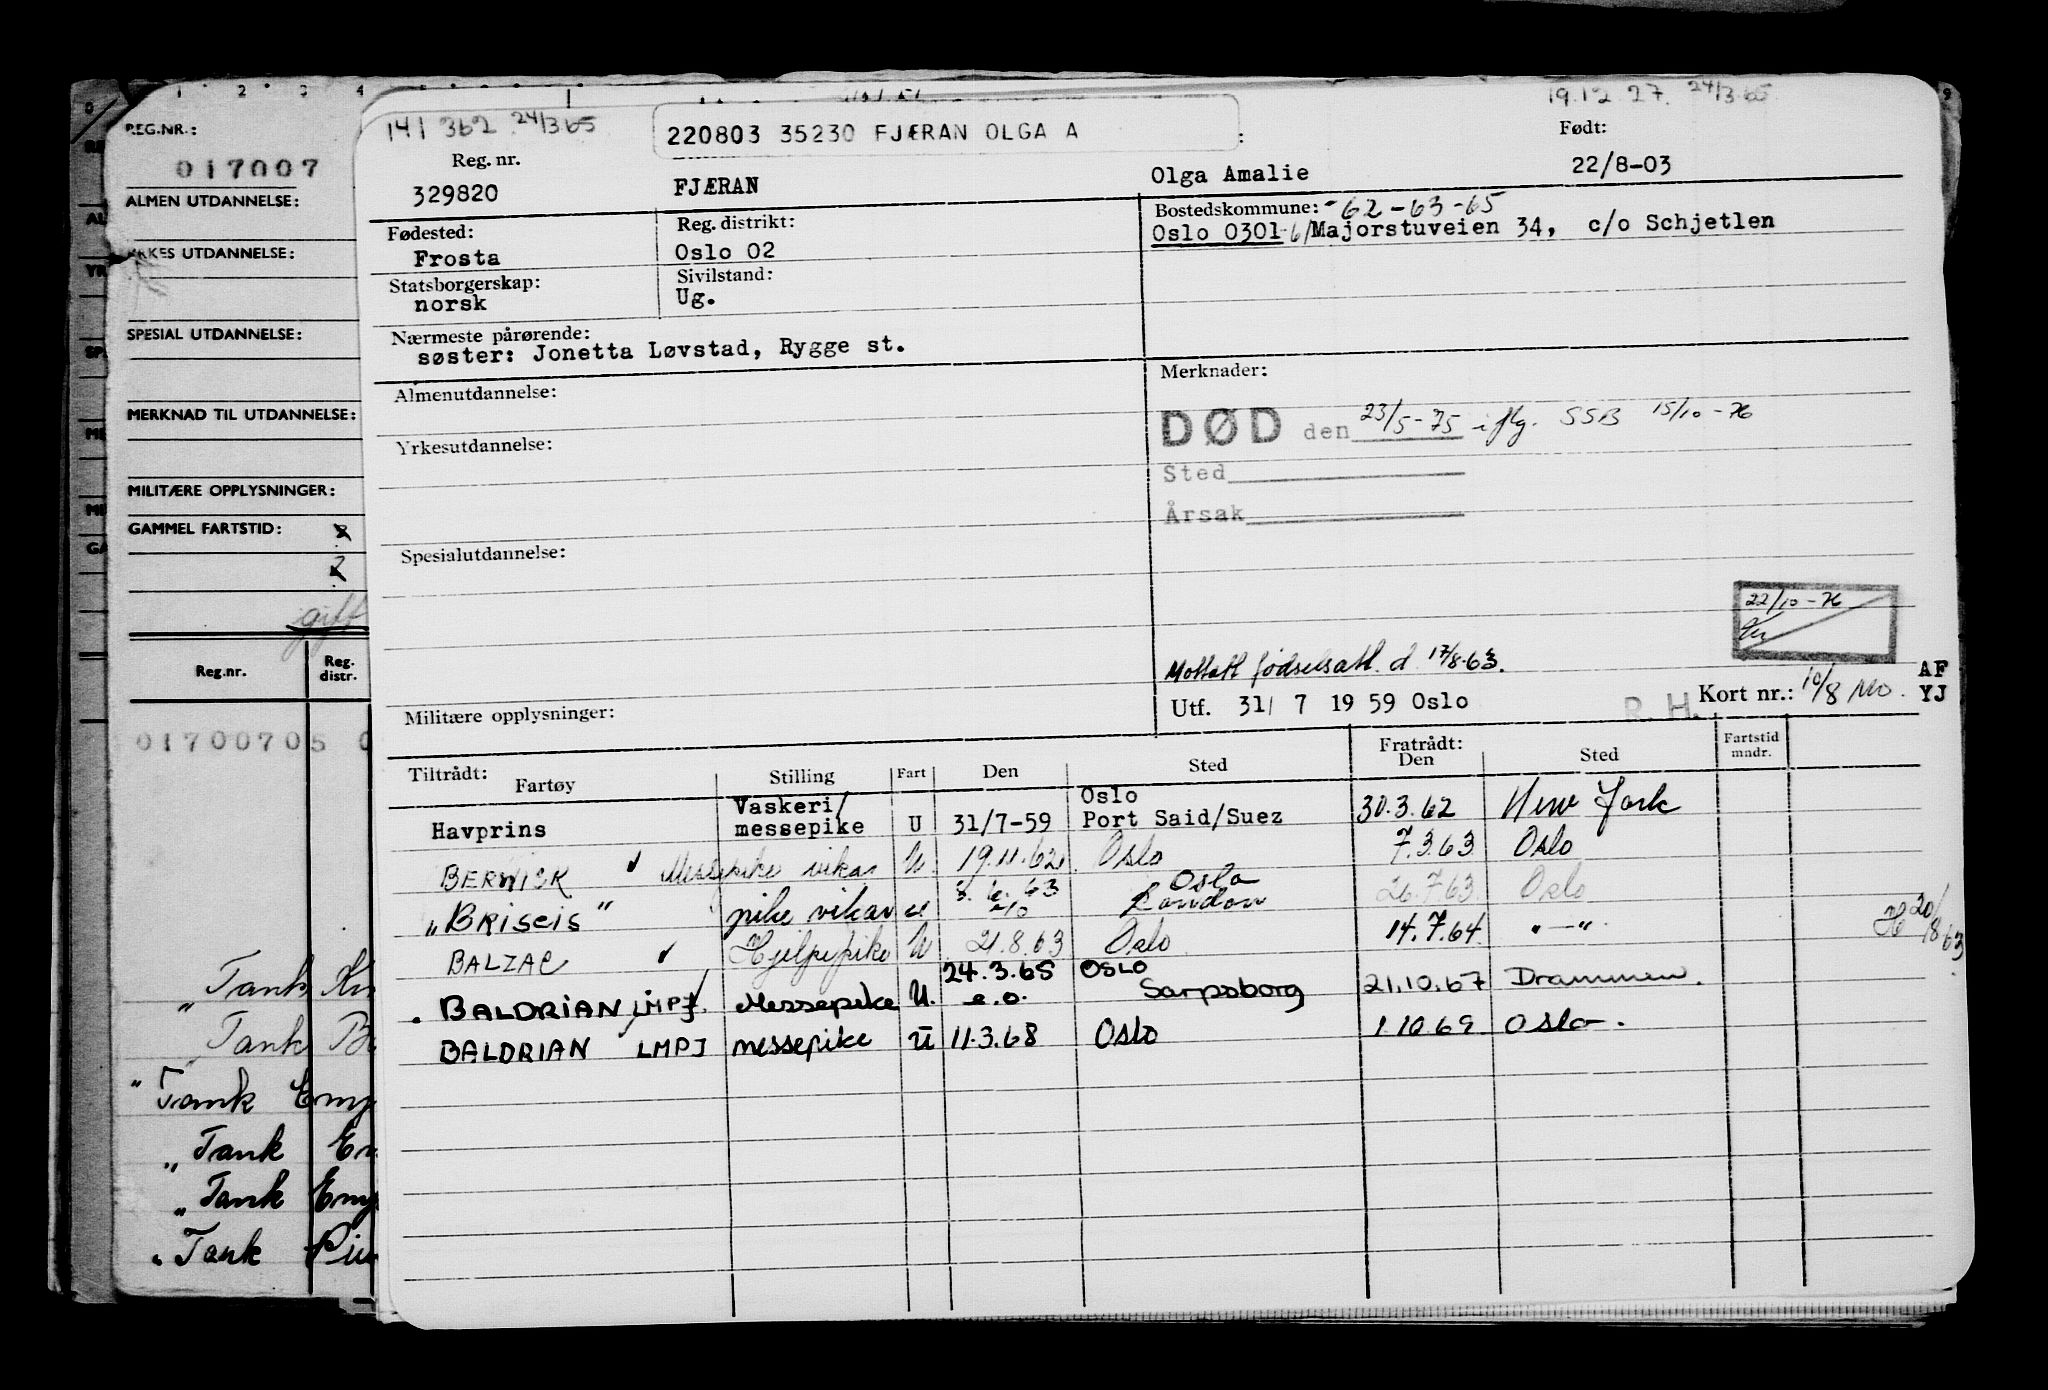 1 2 3 4
REG.NR.:
017007
ALMEN UTDANNELSE:
YRKES UTDANNELSE:
SPESIAL UTDANNELSE:
MERKNAD TIL UTDANNELSE:
MILITÆRE OPPLYSNINGER:
GAMMEL FARTSTID:
gift
Reg.nr. Reg. distr.
01700705
"Tank
"Tank
"Tank
"Tank
"Tank
"Tank
141 362 24/3 65
220803 35230 FJÆRAN OLGA A
19.12 27. 24/3 65
Reg. nr. Født:
329820 FJÆRAN Olga Amalie 22/8-03
Fødested: Reg. distrikt: Bostedskommune: -62-63-65
Frosta Oslo 02 Oslo 0301 Majorstuveien 34, c/o Schjetlen
Statsborgerskap: Sivilstand:
norsk Ug.
Nærmeste pårørende:
søster: Jonetta Løvstad, Rygge st.
Almenutdannelse: Merknader:
DØD den 23/5-75 iflg. SSB 15/10-76
Yrkesutdannelse:
Sted
Årsak
Spesialutdannelse:
22/10-76
Mottatt fødselsatt. d. 17/8-63.
Militære opplysninger: Utf. 31/ 7 19 59 Oslo R. H. Kort nr.: 10/8 Mo. AF YJ
Tiltrådt: Fartøy Stilling Fart Den Sted Fratrådt: Den Sted Fartstid mndr.
Havprins Vaskeri/ messepike U 31/7-59 Oslo Port Said/Suez 30.3.62 New York
BERWICK Messepike vikar U 19.11.62 Oslo 7.3.63 Oslo
"BRISEIS" pike vikar U 8.6.63 Oslo London 26.7.63 Oslo
BALZAC Hjelpepike U 21.8.63 Oslo 14.7.64 " — "
20/8 63
BALDRIAN LMPJ Messepike U. 24.3.65 e.o. OSLO Sarpsborg 21.10.67 Drammen.
BALDRIAN LMPJ messepike U 11.3.68 Oslo 1.10.69 Oslo.